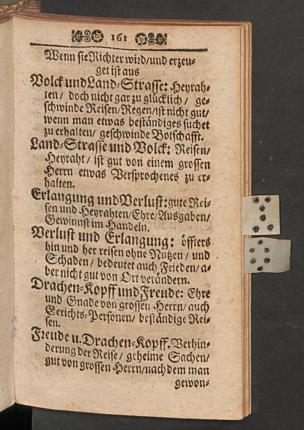 161
Wenn sie Richter wird/und erzeu-
get ist aus
Volck und Land-Strasse: Heyrah-
ten/ doch nicht gar zu glücklich/ ge-
schwinde Reisen/ Regen/ist nicht gut/
wenn man etwas beständiges suchet
zu erhalten/ geschwinde Botschafft.
Land-Strasse und Volck: Reisen/
Heyraht/ ist gut von einem grossen
Herrn etwas Versprochenes zu er-
halten.
Erlangung und Verlust: gute Rei-
sen und Heyrahten/Ehre/Ausgaben/
Gewinnst im Handeln.
Verlust und Erlangung: öffters
hin und her reisen ohne Nutzen/ und
Schaden/ bedeutet auch Frieden/a-
ber nicht gut von Ort verändern.
Drachen-Kopff und Freude: Ehre
und Gnade von grossen Herrn/ auch
Gerichts-Personen/ beständige Rei-
sen.
Freude u. Drachen-Kopff. Verhin-
derung der Reise/ geheime Sachen/
gut von grossen Herrn/nach dem man
gewon-